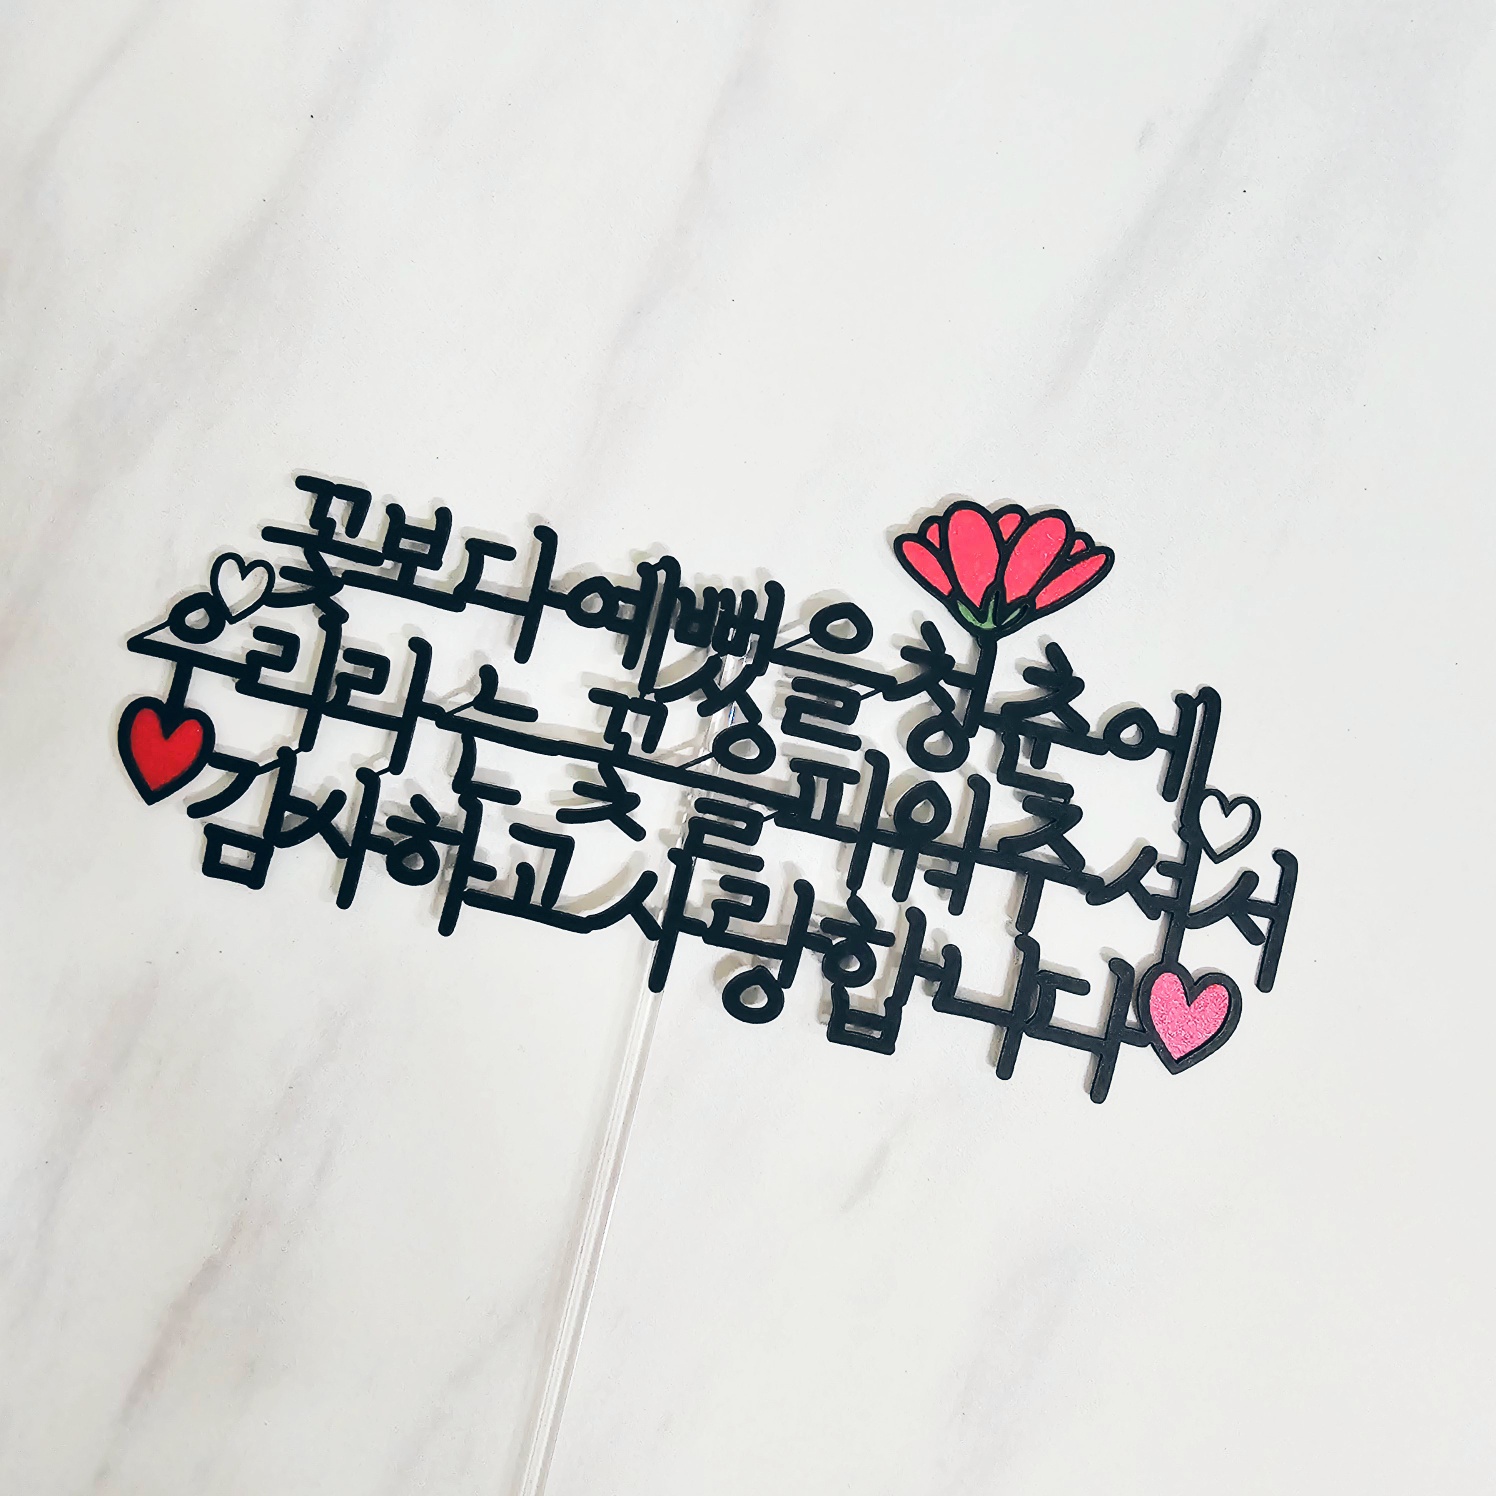 꽃보다 예뻤을 청춘에
우리라는 꽃을 피워주셔서
감사하고 사랑합니다